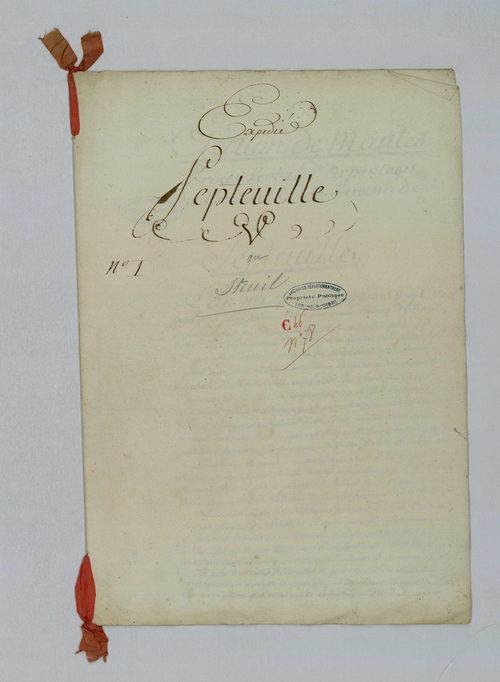 Expédié
Septeuille
V
ou
Steuil
N° I
ARCHIVES DÉPARTEMENTALES
Propriété Publique
SEINE & OISE
C 46
n° 78